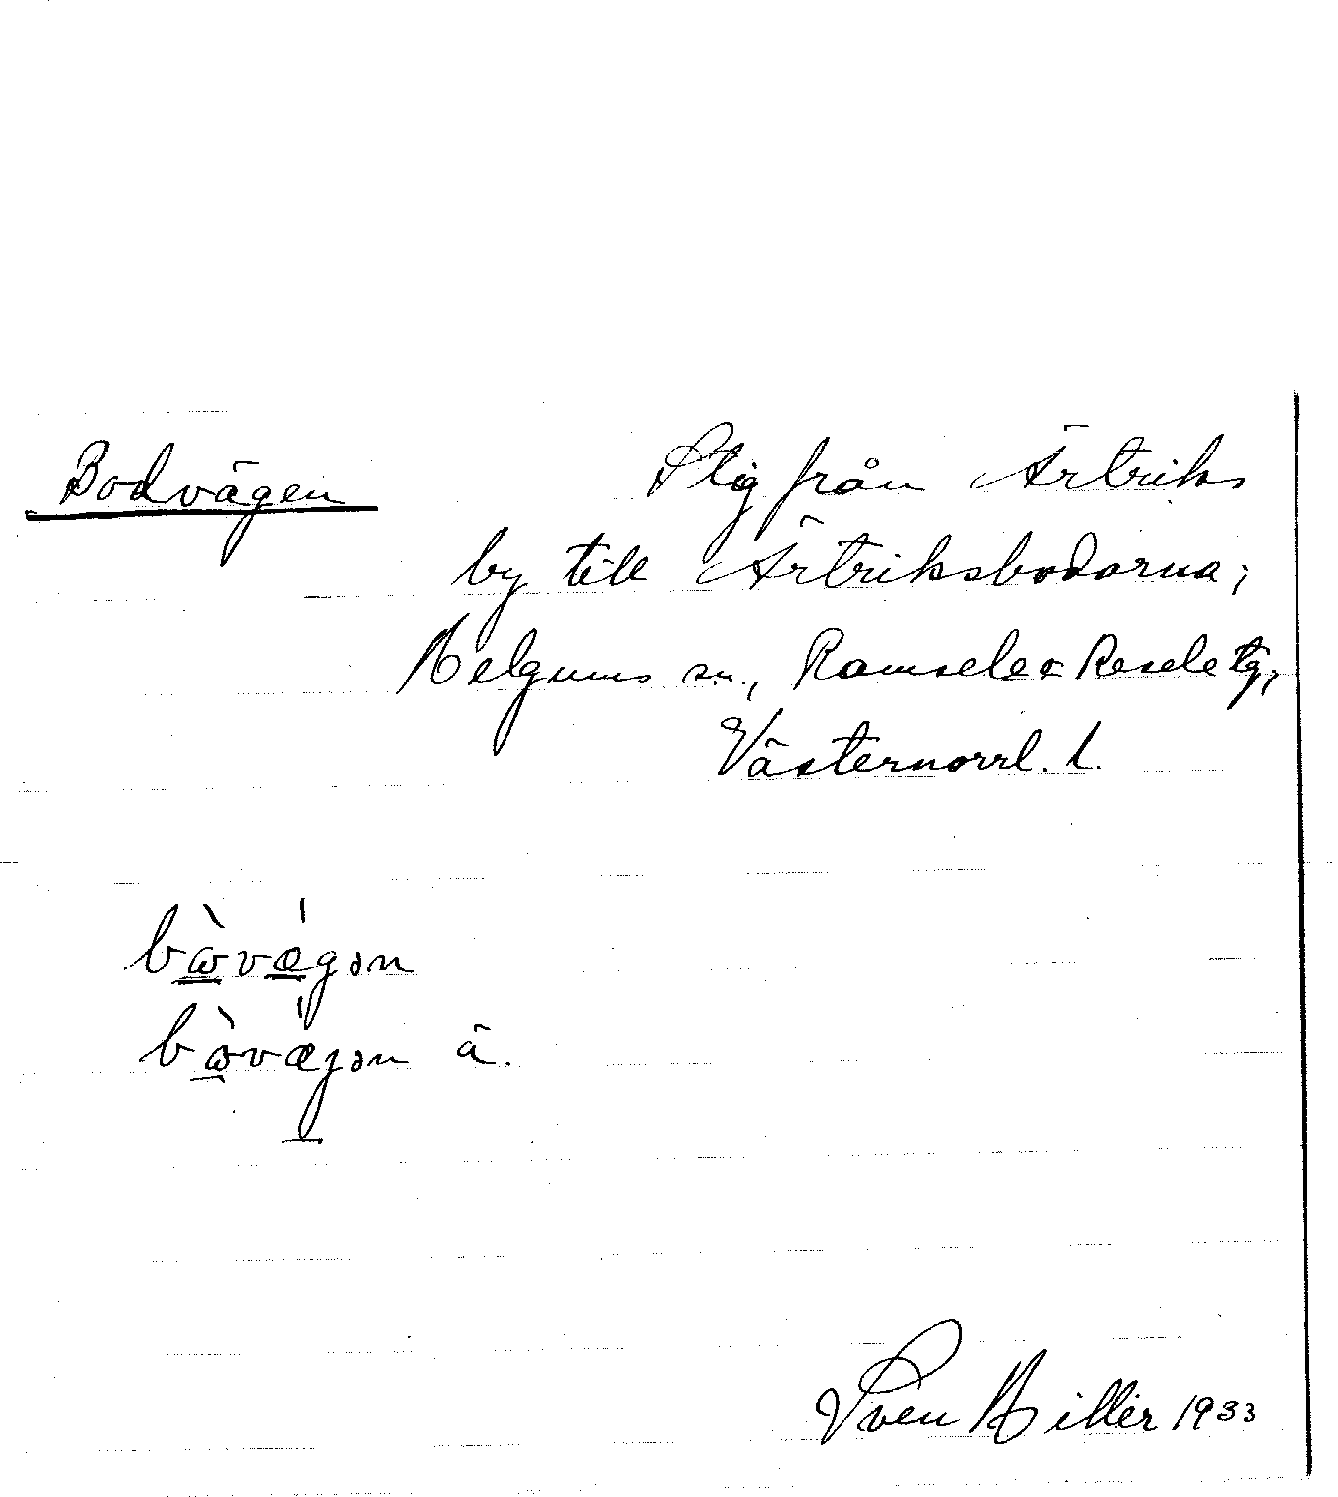 Bodvägen Stig från Ärtriks
by till Ärtriksbodarna;
Helgums sn., Ramsele & Resele tg,
Västernorrl. l.
bὼvǽgən
bὼvǽgən ä.
Sven Hillér 1933